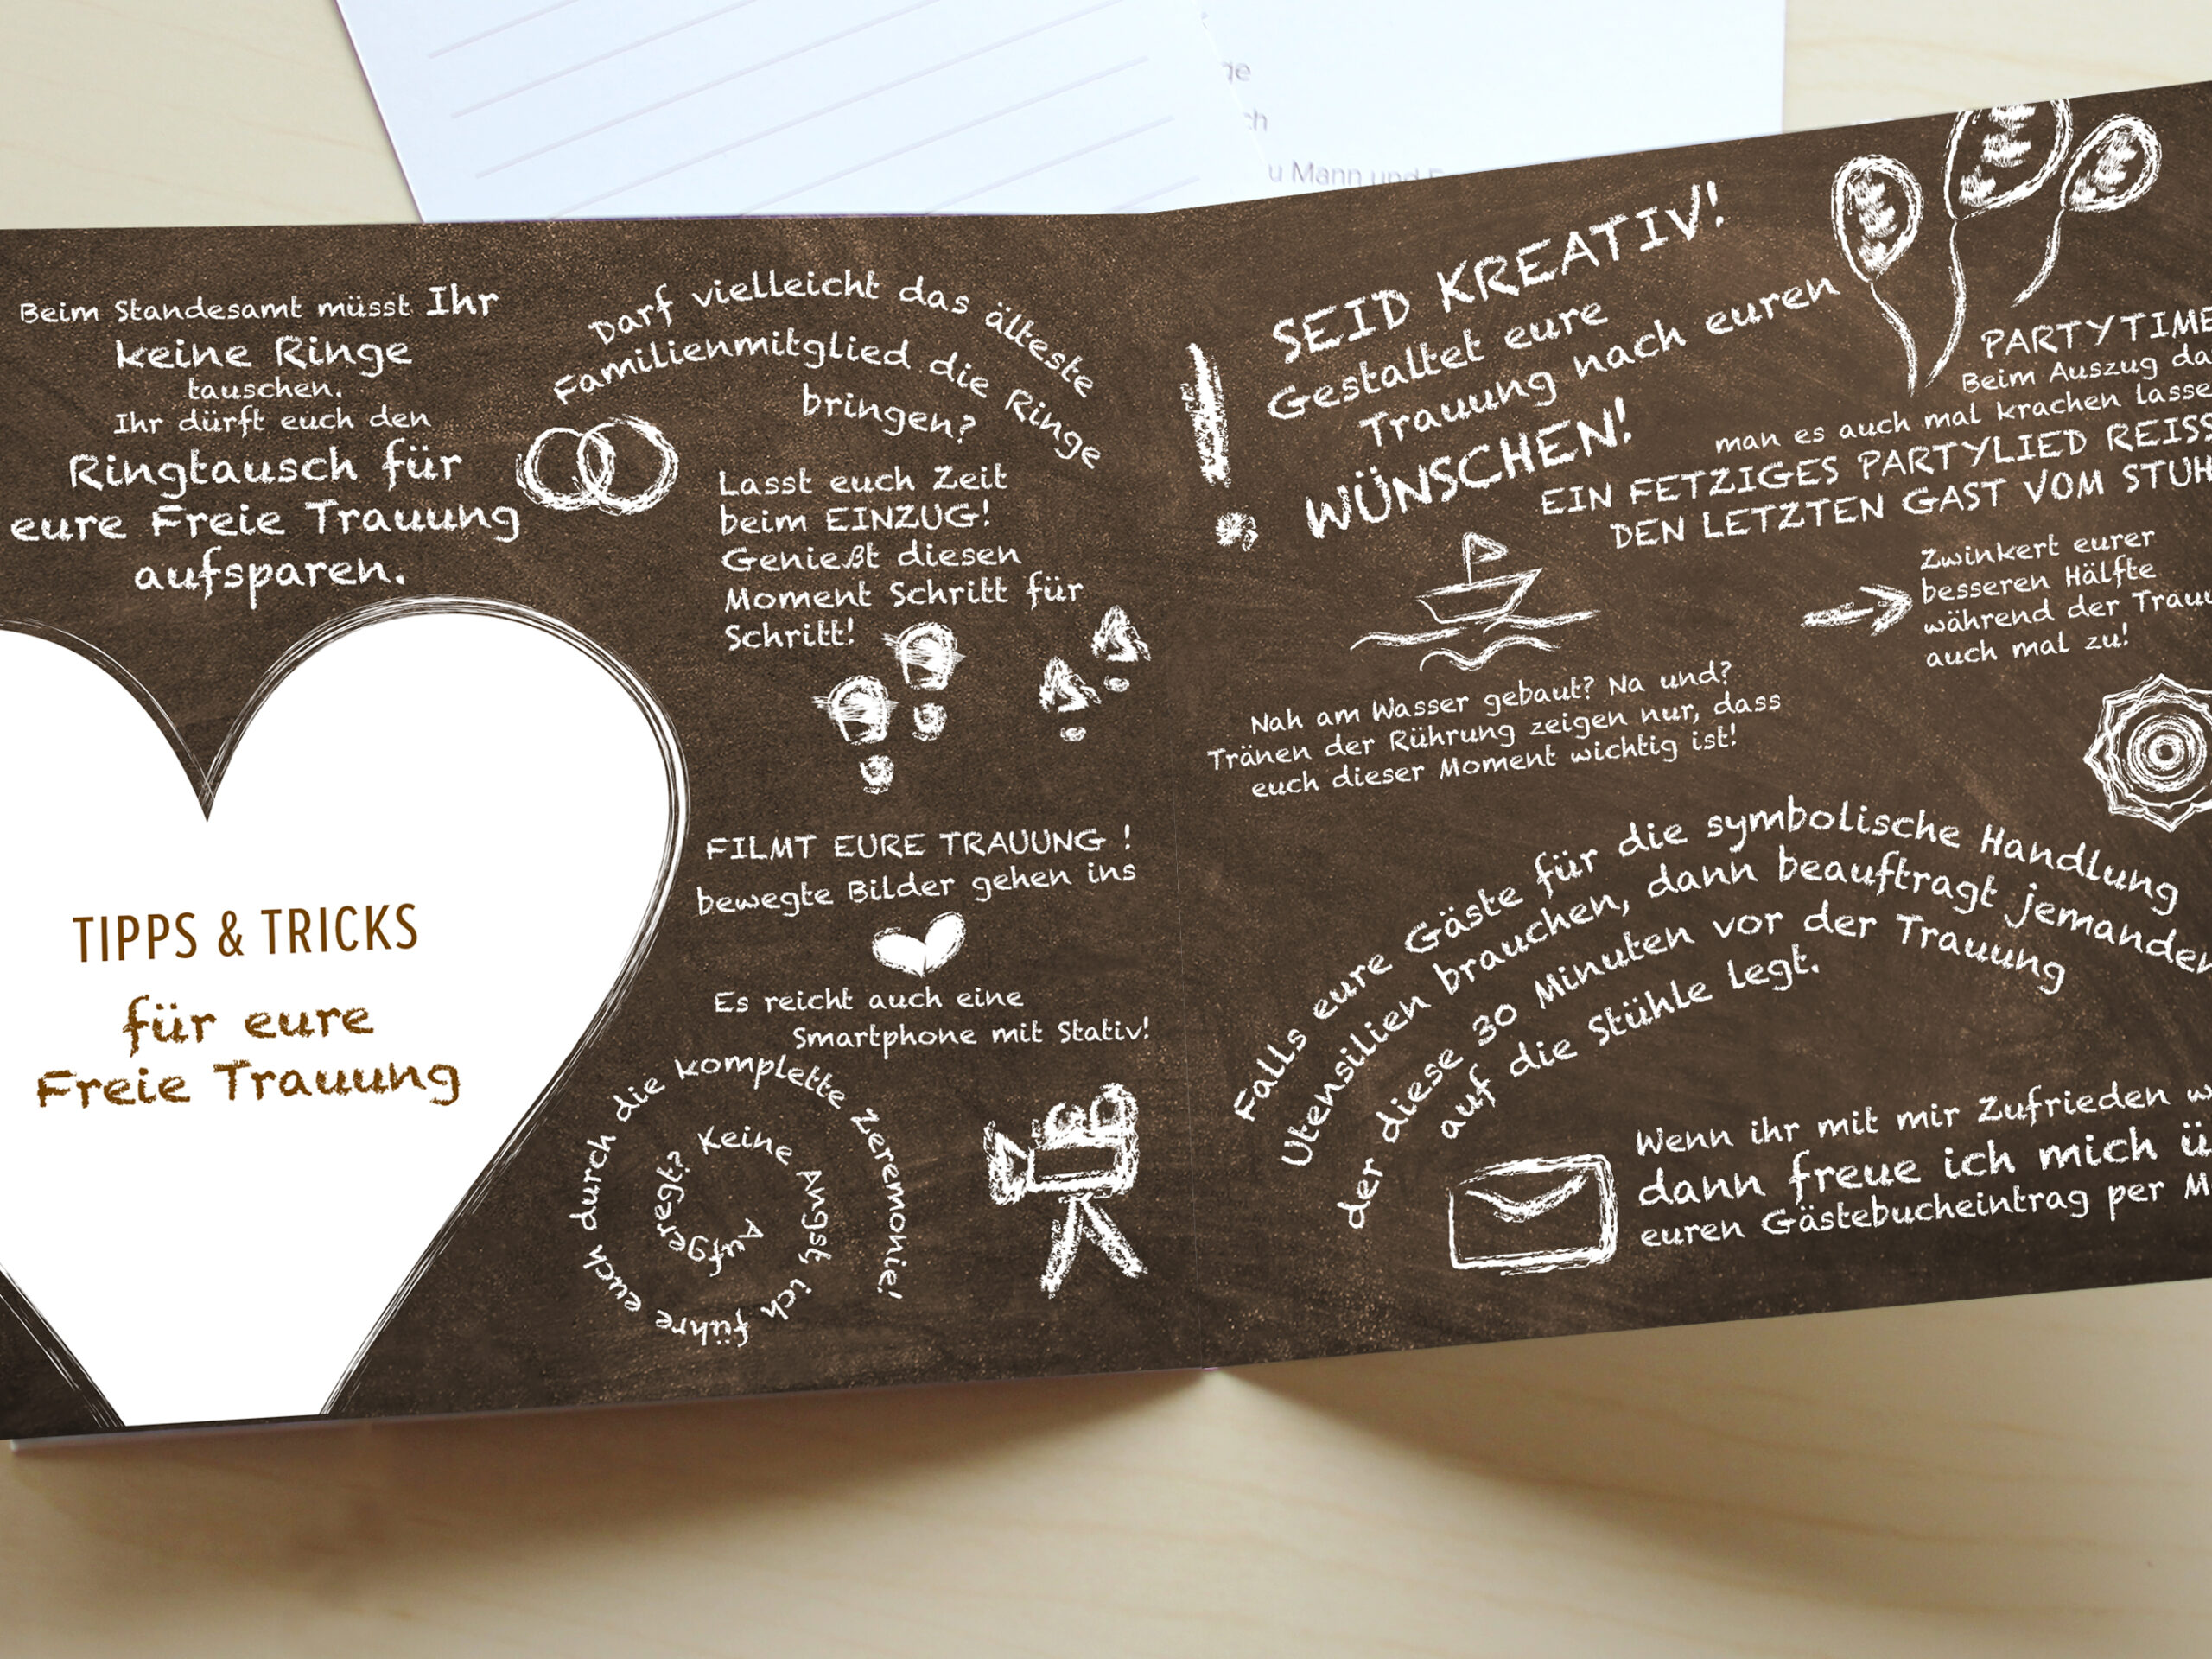 ge
ch
u Mann und
Beim Standesamt müsst Ihr
keine Ringe
tauschen.
Ihr dürft euch den
Ringtausch für
eure Freie Trauung
aufsparen.
Darf vielleicht das älteste
Familienmitglied die Ringe
bringen?
Lasst euch Zeit
beim EINZUG!
Genießt diesen
Moment Schritt für
Schritt!
TIPPS & TRICKS
für eure
Freie Trauung
FILMT EURE TRAUUNG !
bewegte Bilder gehen ins
Es reicht auch eine
Smartphone mit Stativ!
Aufgeregt? Keine Angst, ich führe euch durch die komplette Zeremonie!
SEID KREATIV!
Gestaltet eure
Trauung nach euren
WÜNSCHEN!
PARTYTIME
Beim Auszug da
man es auch mal krachen lasse
EIN FETZIGES PARTYLIED REISS
DEN LETZTEN GAST VOM STUH
Zwinkert eurer
besseren Hälfte
während der Trauu
auch mal zu!
Nah am Wasser gebaut? Na und?
Tränen der Rührung zeigen nur, dass
euch dieser Moment wichtig ist!
Falls eure Gäste für die symbolische Handlung
Utensilien brauchen, dann beauftragt jemanden
der diese 30 Minuten vor der Trauung
auf die Stühle legt.
Wenn ihr mit mir zufrieden w
dann freue ich mich ü
euren Gästebucheintrag per M